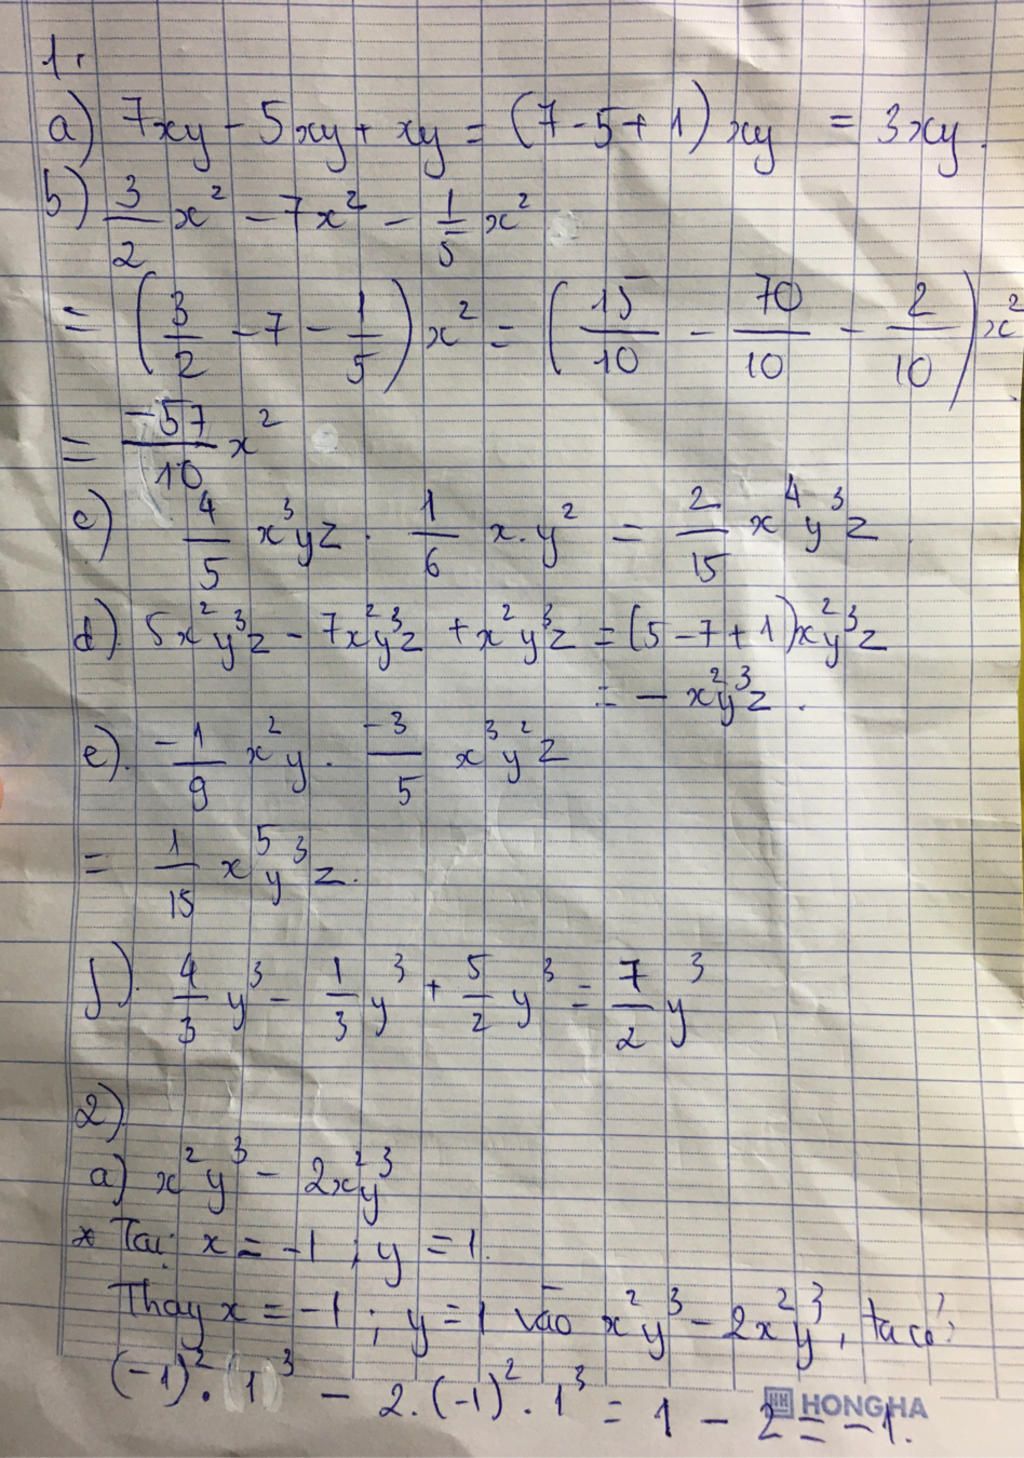 1.
a) 7xy - 5xy + xy = (7-5+1) xy = 3xy.
b) 3/2 x² - 7x² - 1/5 x²
= (3/2 - 7 - 1/5) x² = (15/10 - 70/10 - 2/10) x²
= -57/10 x²
c) 4/5 x³yz . 1/6 x.y² = 2/15 x⁴y³z
d) 5x²y³z - 7x²y³z + x²y³z = (5-7+1)x²y³z
= - x²y³z.
e). -1/9 x²y . -3/5 x³y²z
= 1/15 x⁵y³z.
f). 4/3 y³ - 1/3 y³ + 5/2 y³ = 7/2 y³
2)
a) x²y³ - 2x²y³
* Tại x = -1 ; y = 1.
Thay x = -1 ; y = 1 vào x²y³ - 2x²y³, ta có:
(-1)² . 1³ - 2.(-1)² . 1³ = 1 - 2 = -1.
HONG HA